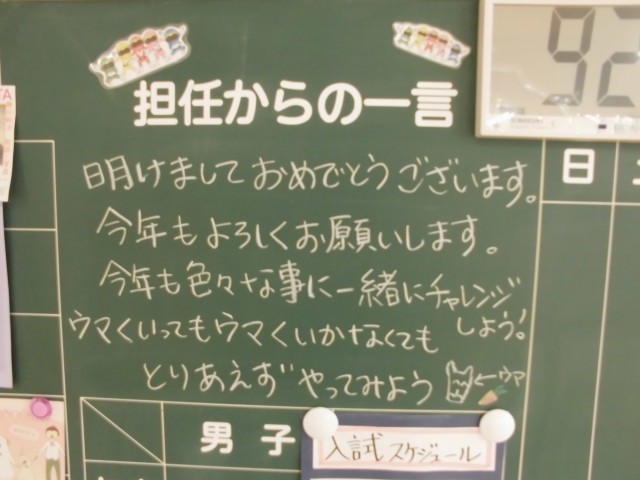 担任からの一言
92
明けましておめでとうございます。
今年もよろしくお願いします。
今年も色々な事に一緒にチャレンジ
しよう!
ウマくいってもウマくいかなくても
とりあえずやってみよう ←ウマ
日
男子
入試スケジュール